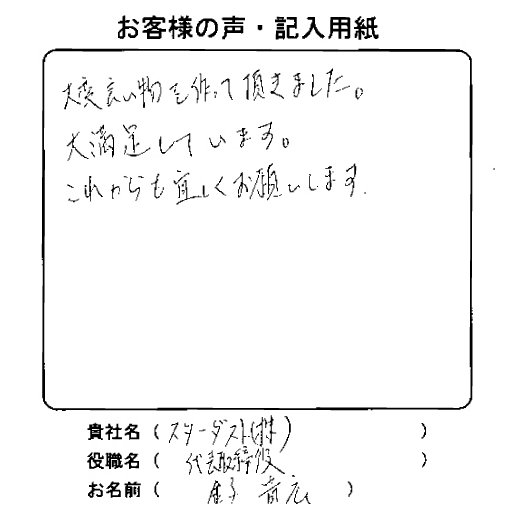 お客様の声・記入用紙
大変良い物を作って頂きました。
大満足しています。
これからも宜しくお願いします.
貴社名(スターダスト(株))
役職名(代表取締役)
お名前(金子 )